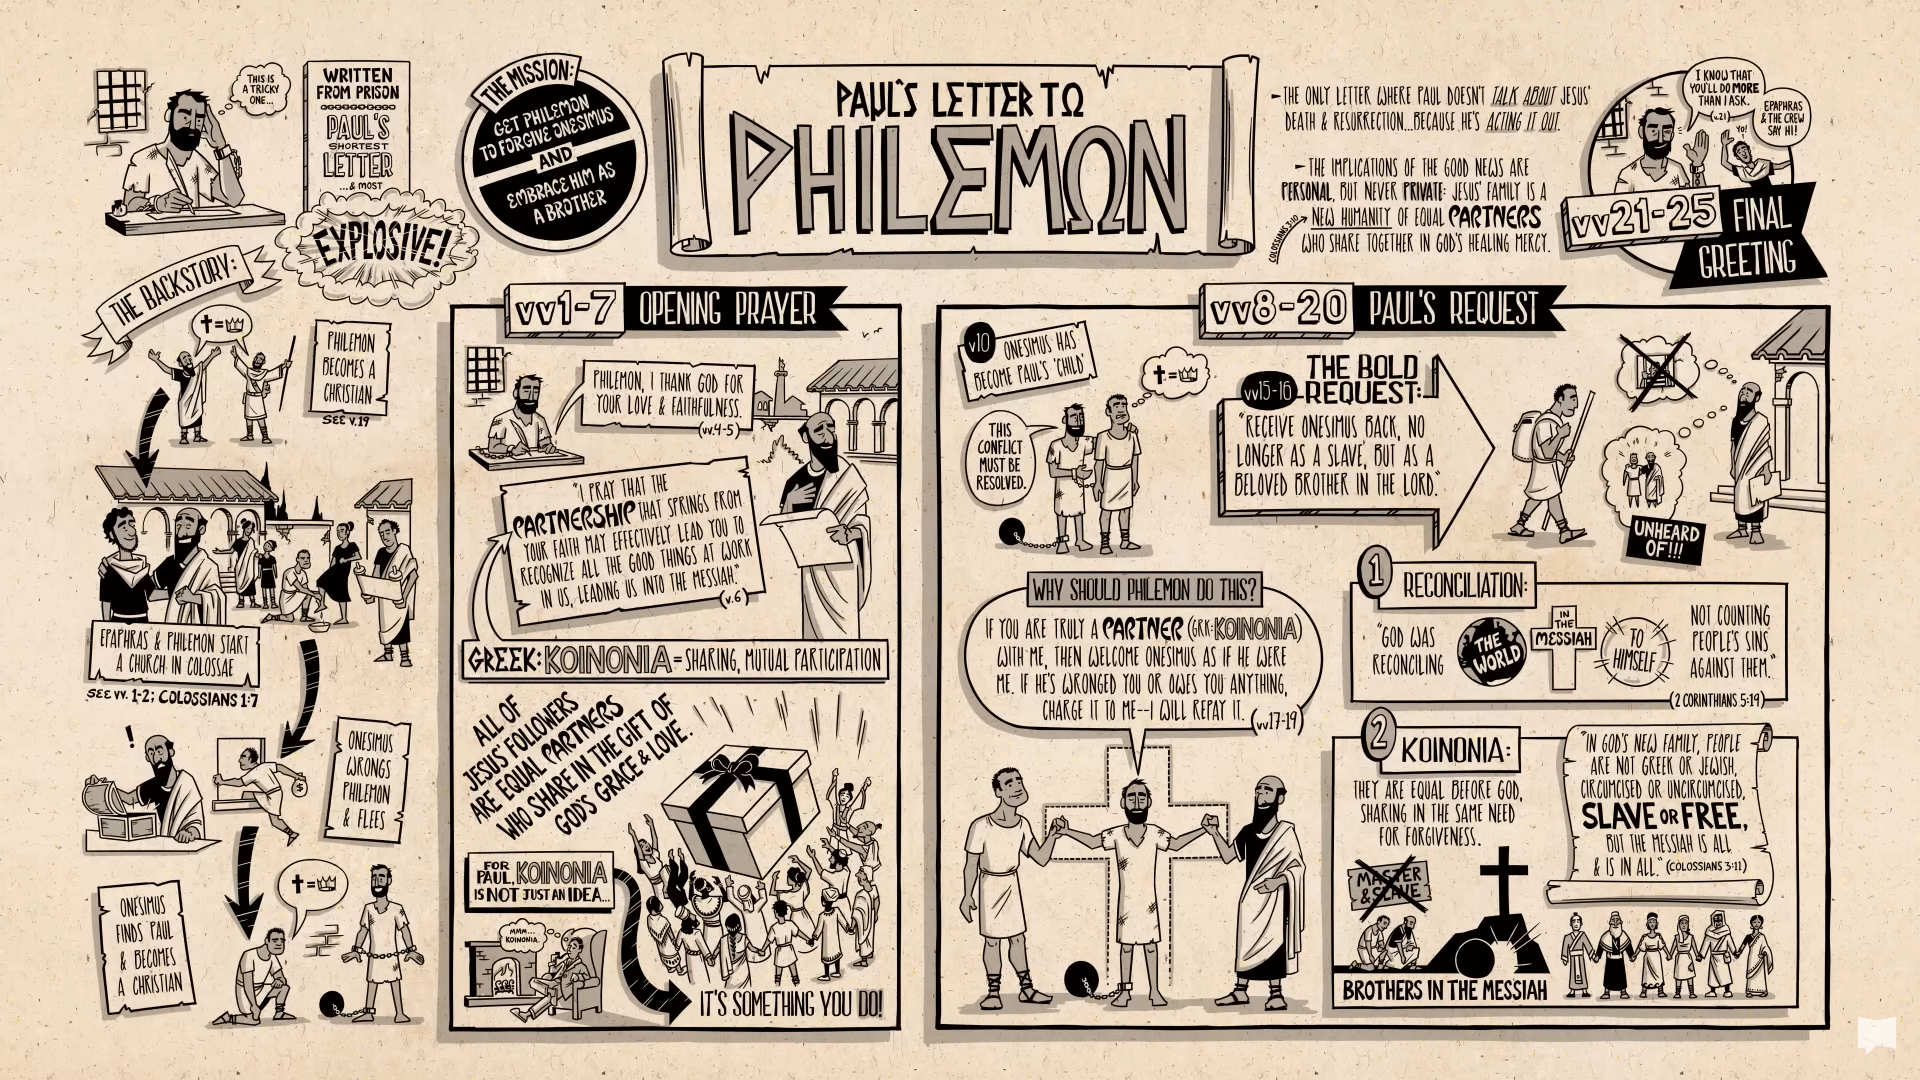 THIS IS
A TRICKY
ONE...
WRITTEN
FROM PRISON
PAUL'S
SHORTEST
LETTER
...& MOST
EXPLOSIVE!
THE MISSION:
GET PHILEMON
TO FORGIVE ONESIMUS
AND
EMBRACE HIM AS
A BROTHER
PAUL'S LETTER TO
PHILEMON
-THE ONLY LETTER WHERE PAUL DOESN'T TALK ABOUT JESUS'
DEATH & RESURRECTION...BECAUSE HE'S ACTING IT OUT.
-THE IMPLICATIONS OF THE GOOD NEWS ARE
PERSONAL, BUT NEVER PRIVATE: JESUS' FAMILY IS A
NEW HUMANITY OF EQUAL PARTNERS
WHO SHARE TOGETHER IN GOD'S HEALING MERCY.
COLOSSIANS 3:10
I KNOW THAT
YOU'LL DO MORE
THAN I ASK.
(v.21)
EPAPHRAS
& THE CREW
SAY HI!
YO!
vv21-25
FINAL
GREETING
THE BACKSTORY:
=
PHILEMON
BECOMES A
CHRISTIAN
SEE v.19
EPAPHRAS & PHILEMON START
A CHURCH IN COLOSSAE
SEE vv. 1-2; COLOSSIANS 1:7
!
$
ONESIMUS
WRONGS
PHILEMON
& FLEES
ONESIMUS
FINDS PAUL
& BECOMES
A CHRISTIAN
=
vv1-7 OPENING PRAYER
PHILEMON, I THANK GOD FOR
YOUR LOVE & FAITHFULNESS.
(vv.4-5)
"I PRAY THAT THE
PARTNERSHIP THAT SPRINGS FROM
YOUR FAITH MAY EFFECTIVELY LEAD YOU TO
RECOGNIZE ALL THE GOOD THINGS AT WORK
IN US, LEADING US INTO THE MESSIAH."
(v.6)
GREEK: KOINONIA = SHARING, MUTUAL PARTICIPATION
ALL OF
JESUS' FOLLOWERS
ARE EQUAL PARTNERS
WHO SHARE IN THE GIFT OF
GOD'S GRACE & LOVE.
FOR
PAUL, KOINONIA
IS NOT JUST AN IDEA...
MMM...
KOINONIA.
IT'S SOMETHING YOU DO!
vv8-20 PAUL'S REQUEST
v10
ONESIMUS HAS
BECOME PAUL'S 'CHILD'
=
THIS
CONFLICT
MUST BE
RESOLVED.
vv15-16
THE BOLD
REQUEST:
"RECEIVE ONESIMUS BACK, NO
LONGER AS A SLAVE, BUT AS A
BELOVED BROTHER IN THE LORD."
UNHEARD
OF!!!
WHY SHOULD PHILEMON DO THIS?
IF YOU ARE TRULY A PARTNER (GRK: KOINONIA)
WITH ME, THEN WELCOME ONESIMUS AS IF HE WERE
ME. IF HE'S WRONGED YOU OR OWES YOU ANYTHING,
CHARGE IT TO ME--I WILL REPAY IT.
(vv17-19)
1 RECONCILIATION:
"GOD WAS
RECONCILING
THE
WORLD
IN
THE
MESSIAH
TO
HIMSELF
NOT COUNTING
PEOPLE'S SINS
AGAINST THEM."
(2 CORINTHIANS 5:19)
2 KOINONIA:
THEY ARE EQUAL BEFORE GOD,
SHARING IN THE SAME NEED
FOR FORGIVENESS.
MASTER
& SLAVE
BROTHERS IN THE MESSIAH
"IN GOD'S NEW FAMILY, PEOPLE
ARE NOT GREEK OR JEWISH,
CIRCUMCISED OR UNCIRCUMCISED,
SLAVE OR FREE,
BUT THE MESSIAH IS ALL
& IS IN ALL." (COLOSSIANS 3:11)